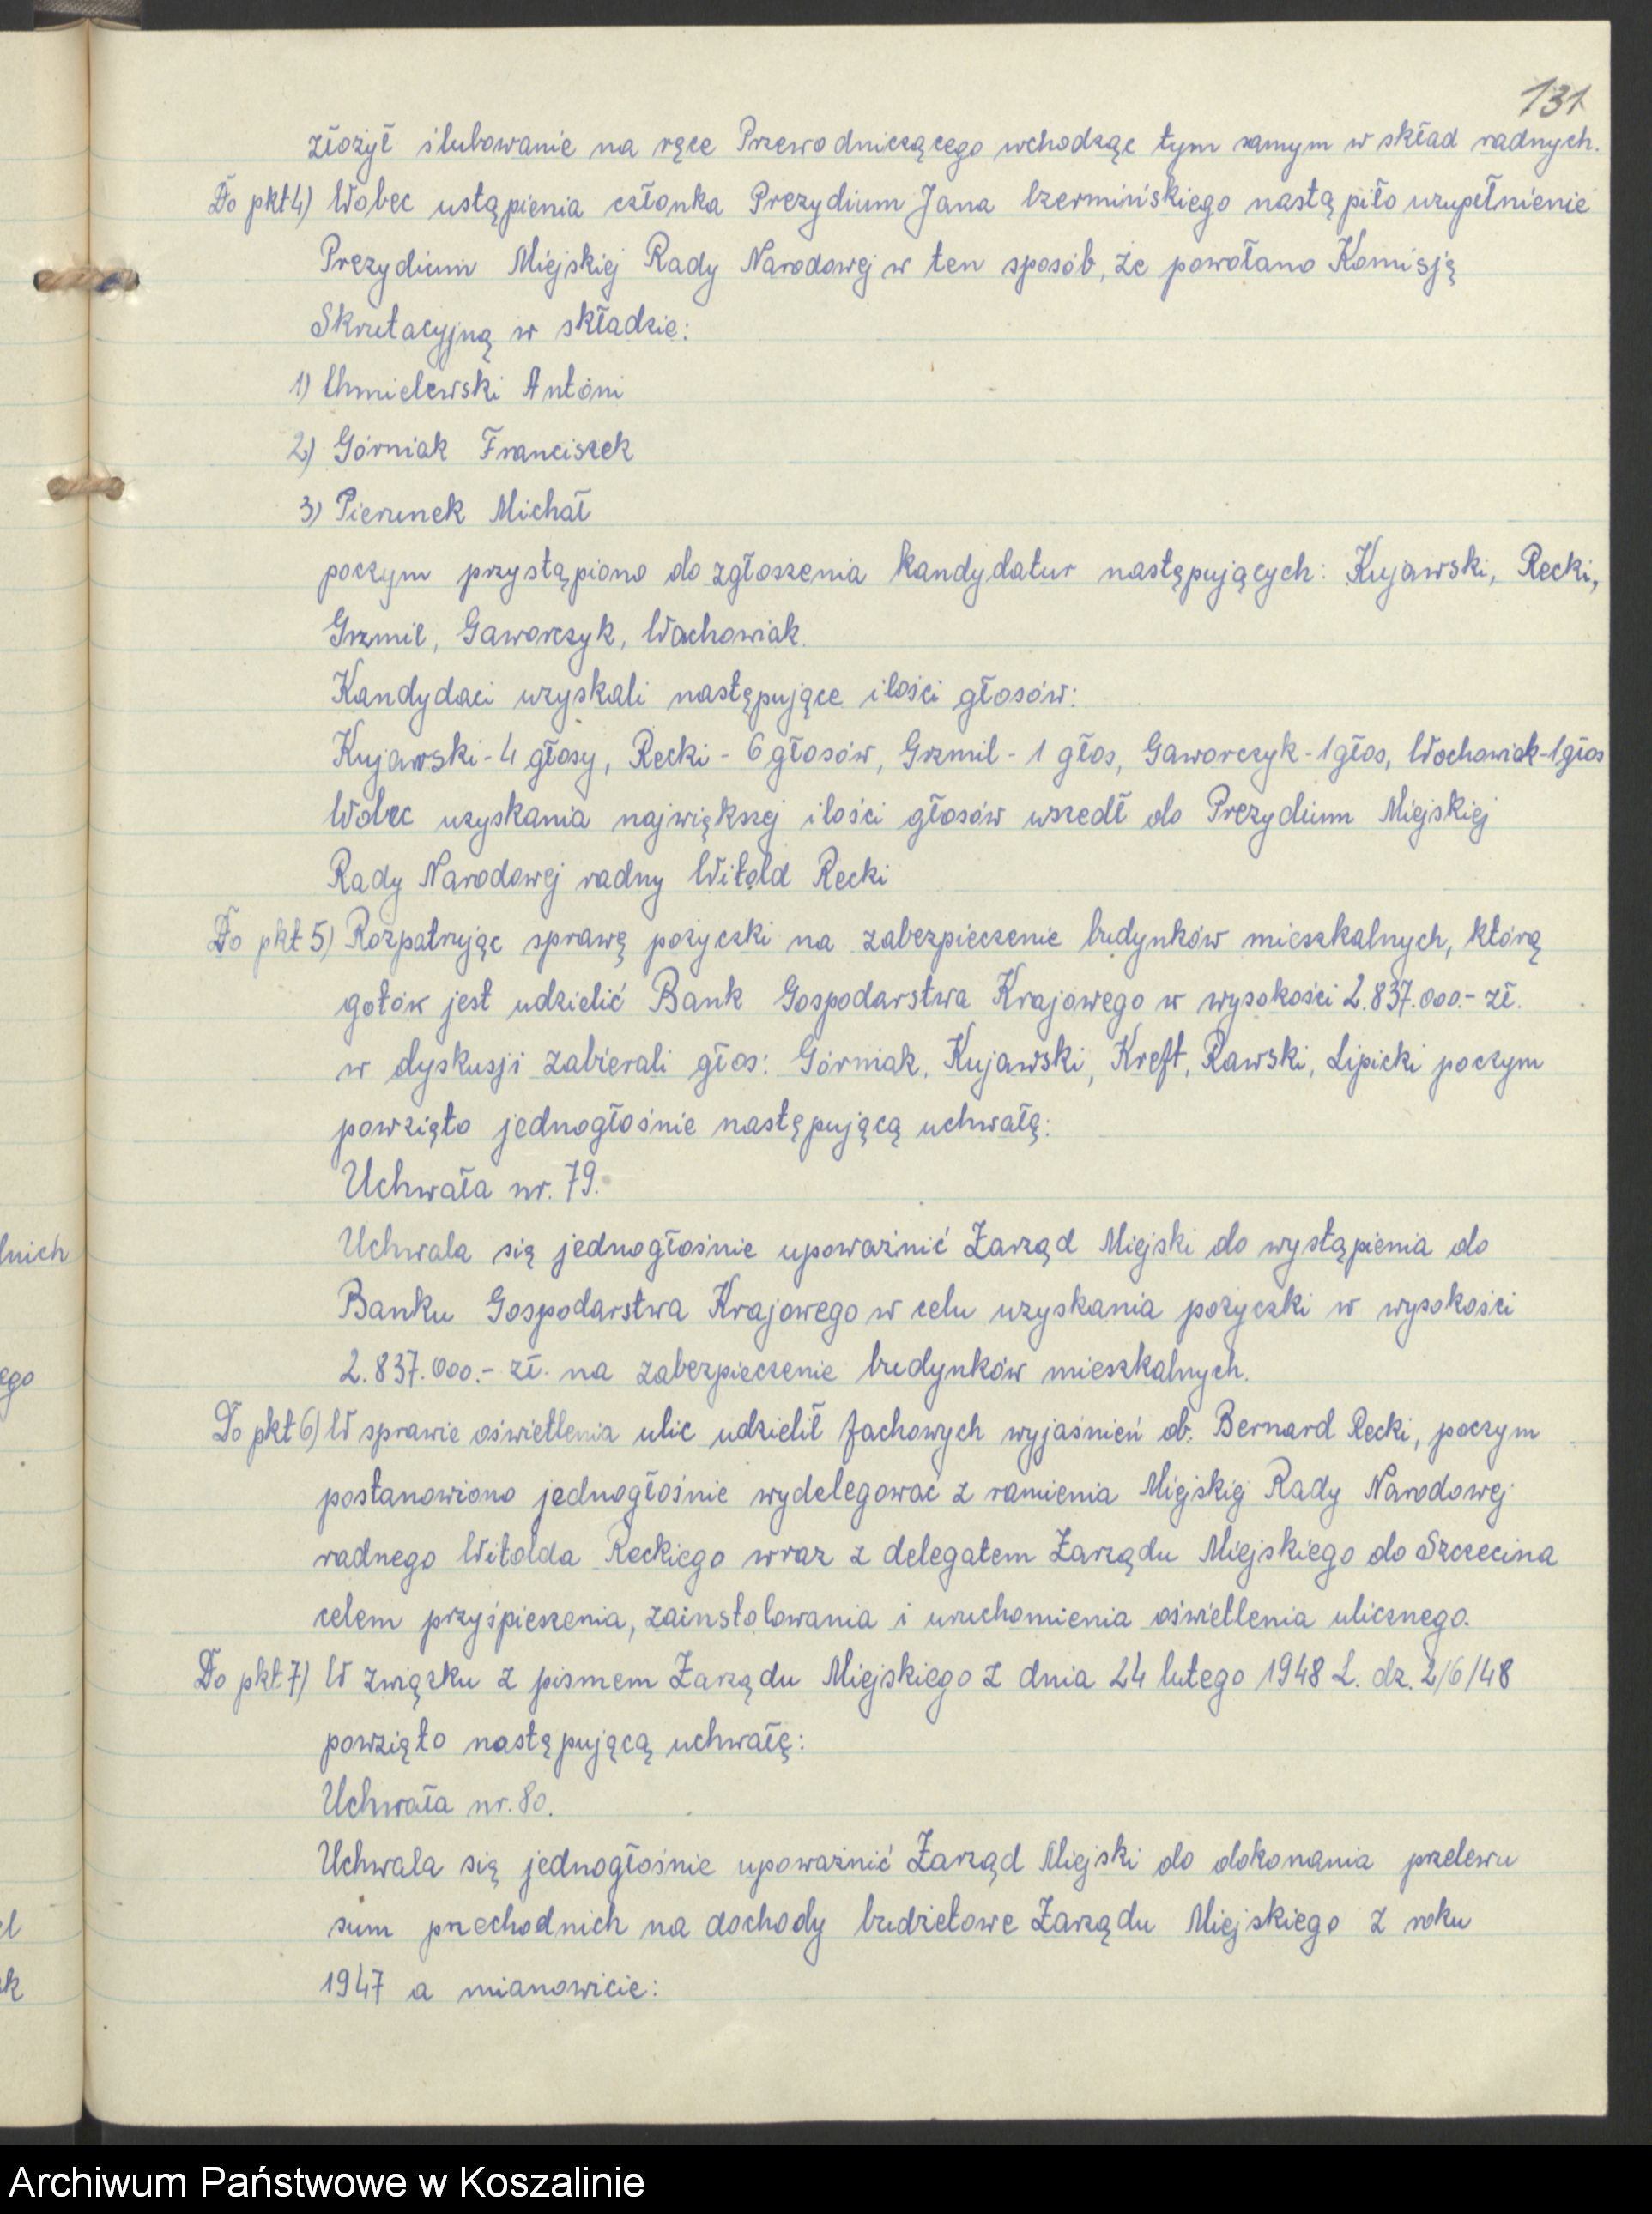 131
złożył ślubowanie na ręce Przewodniczącego wchodząc tym samym w skład radnych.
Do pkt 4) Wobec ustąpienia członka Prezydium Jana Czermińskiego nastąpiło uzupełnienie
Prezydium Miejskiej Rady Narodowej w ten sposób, że powołano Komisją
Skrutacyjną w składzie:
1) Chmielewski Antoni
2) Górniak Franciszek
3) Pierunek Michał
poczym przystąpiono do zgłoszenia kandydatur następujących: Kujawski, Recki,
Grzmil, Gaworczyk, Wachowiak.
Kandydaci uzyskali następujące ilości głosów:
Kujawski - 4 głosy, Recki - 6 głosów, Grzmil - 1 głos, Gaworczyk - 1 głos, Wachowiak - 1 głos
Wobec uzyskania największej ilości głosów wszedł do Prezydium Miejskiej
Rady Narodowej radny Witold Recki
Do pkt 5) Rozpatrując sprawę pożyczki na zabezpieczenie budynków mieszkalnych, którą
gotów jest udzielić Bank Gospodarstwa Krajowego w wysokości 2.837.000.- zł.
w dyskusji zabierali głos: Górniak, Kujawski, Kreft, Rawski, Lipicki poczym
powzięto jednogłośnie następującą uchwałę:
Uchwała nr. 79.
Uchwala się jednogłośnie upoważnić Zarząd Miejski do wystąpienia do
Banku Gospodarstwa Krajowego w celu uzyskania pożyczki w wysokości
2.837.000.- zł. na zabezpieczenie budynków mieszkalnych.
Do pkt 6) W sprawie oświetlenia ulic udzielił fachowych wyjaśnień ob. Bernard Recki, poczym
postanowiono jednogłośnie wydelegować z ramienia Miejskiej Rady Narodowej
radnego Witolda Reckiego wraz z delegatem Zarządu Miejskiego do Szczecina
celem przyśpieszenia, zainstalowania i uruchomienia oświetlenia ulicznego.
Do pkt 7) W związku z pismem Zarządu Miejskiego z dnia 24 lutego 1948 L. dz. 2/6/48
powzięto następującą uchwałę:
Uchwała nr. 80.
Uchwala się jednogłośnie upoważnić Zarząd Miejski do dokonania przelewu
sum przechodnich na dochody budżetowe Zarządu Miejskiego z roku
1947 a mianowicie:
Archiwum Państwowe w Koszalinie